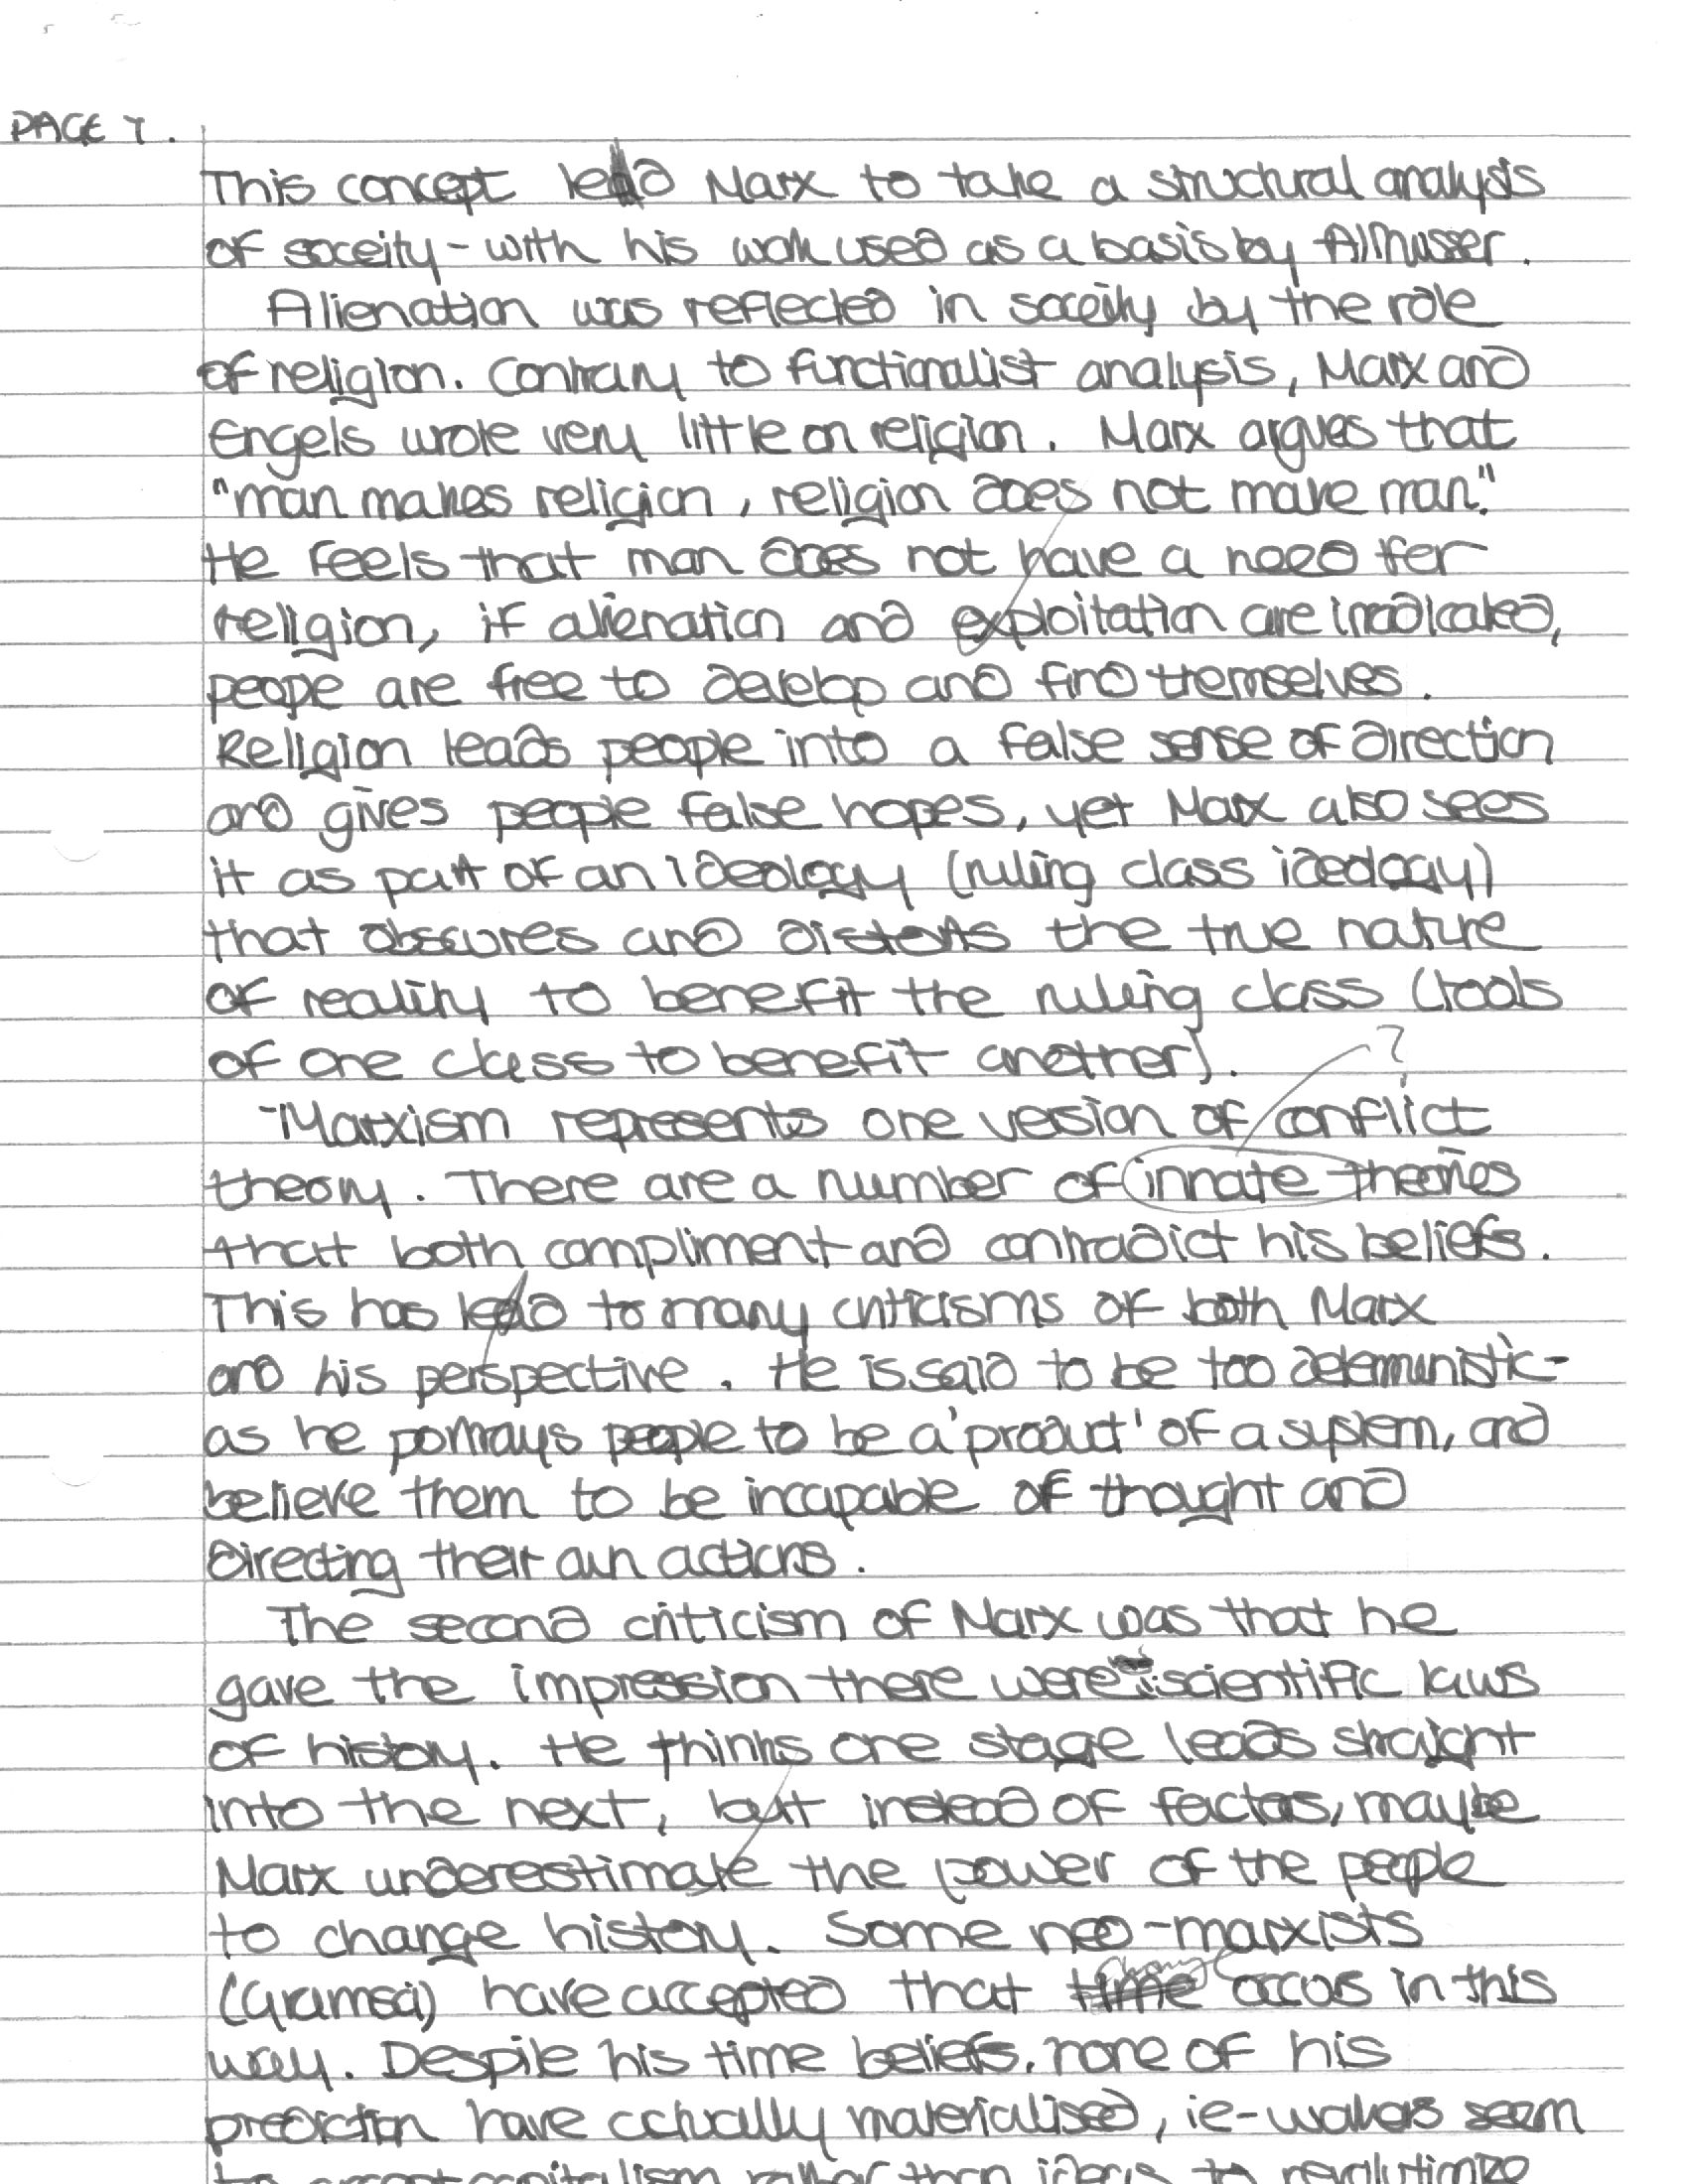 PAGE 7.
This concept lead Marx to take a structural analysis
of soceity - with his work used as a basis by Althusser.
Alienation was reflected in soceity by the role
of religion. Contrary to functionalist analysis, Marx and
Engels wrote very little on religion. Marx argues that
"man makes religion, religion does not make man."
He feels that man does not have a need for
religion, if alienation and exploitation are irradicated,
peope are free to develop and find themselves.
Religion leads people into a false sense of direction
and gives people false hopes, yet Marx also sees
it as part of an ideology (ruling class ideology)
that obscures and distorts the true nature
of reality to benefit the ruling class (tools
of one class to benefit another).
?
Marxism represents one version of conflict
theory. There are a number of innate theories
that both compliment and contradict his beliefs.
This has lead to many criticisms of both Marx
and his perspective. He is said to be too deterministic-
as he portrays people to be a 'product' of a system, and
believe them to be incapable of thought and
directing their own actions.
The second criticism of Marx was that he
gave the impression there were scientific laws
of history. He thinks one stage leads straight
into the next, but instead of factors, maybe
Marx underestimate the power of the people
to change history. Some neo-marxists
change
(Gramsci) have accepted that time occurs in this
way. Despite his time beliefs, none of his
prediction have actually materialised, ie-workers seem
to accept capitalism rather than ideas to revolutionize